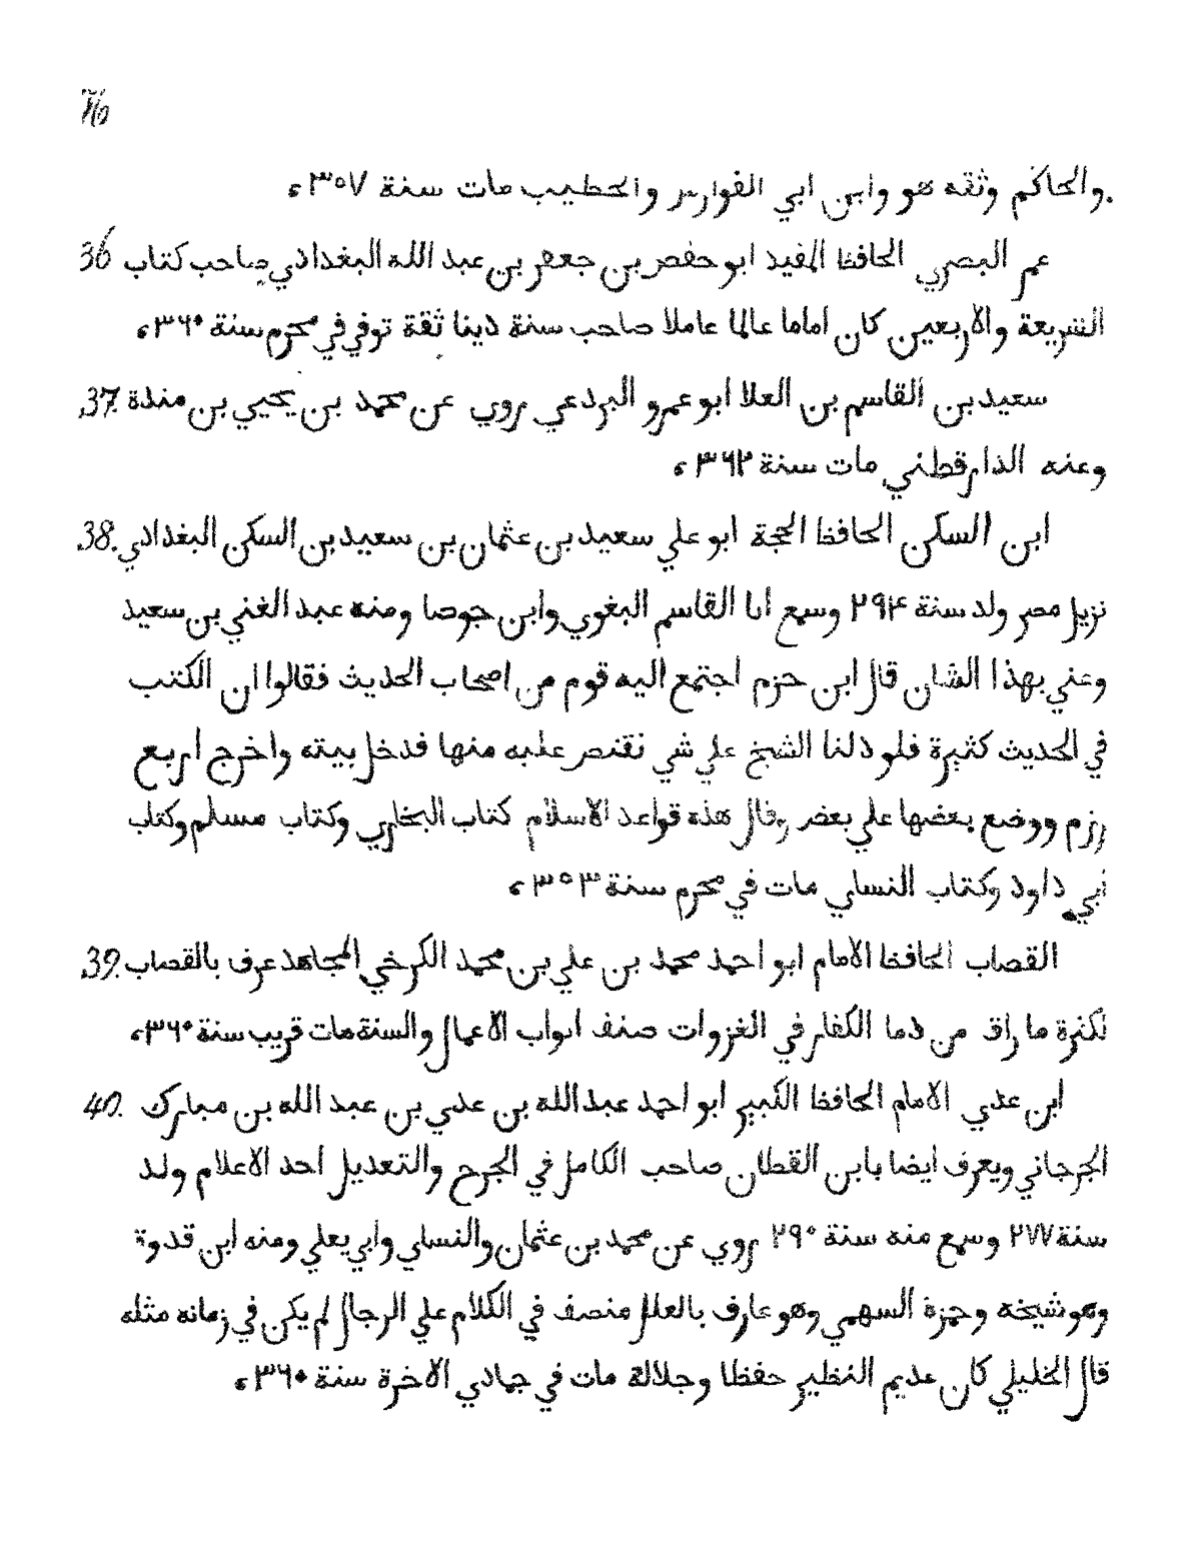 والحاكم وثقه هو وابن ابي الفوارس والخطيب مات سنة ٣٥٧،
36 عمر البصري الحافظ المفيد ابو حفص بن جعفر بن عبد الله البغدادي صاحب كتاب
الشريعة والاربعين كان اماما عالما عاملا صاحب سنة دينا ثقة توفي في محرم سنة ٣٦٠،
37. سعيد بن القاسم بن العلا ابو عمرو البردعي روي عن محمد بن يحيي بن مندة
وعنه الدارقطني مات سنة ٣٦٢،
38. ابن السكن الحافظ الحجة ابو علي سعيد بن عثمان بن سعيد بن السكن البغدادي
نزيل مصر ولد سنة ٢٩٤ وسمع ابا القاسم البغوي وابن جوصا ومنه عبد الغني بن سعيد
وعني بهذا الشان قال ابن حزم اجتمع اليه قوم من اصحاب الحديث فقالوا ان الكتب
في الحديث كثيرة فلو دلنا الشيخ علي شي نقتصر عليه منها فدخل بيته واخرج اربع
رزم ووضع بعضها علي بعض وقال هذه قواعد الاسلام كتاب البخاري وكتاب مسلم وكتاب
ابي داود وكتاب النساي مات في محرم سنة ٣٥٣،
39. القصاب الحافظ الامام ابو احمد محمد بن علي بن محمد الكرخي المجاهد عرف بالقصاب
لكثرة ما راق من دما الكفار في الغزوات صنف ابواب الاعمال والسنة مات قريب سنة ٣٦٠،
40. ابن عدي الامام الحافظ الكبير ابو احمد عبد الله بن عدي بن عبد الله بن مبارك
الجرجاني ويعرف ايضا بابن القطان صاحب الكامل في الجرح والتعديل احد الاعلام ولد
سنة ٢٧٧ وسمع منه سنة ٢٩٠ روي عن محمد بن عثمان والنساي وابي يعلي ومنه ابن قدوة
وهو شيخه وحمزة السهمي وهو عارف بالعلل منصف في الكلام علي الرجال لم يكن في زمانه مثله
قال الخليلي كان عديم النظير حفظا وجلالة مات في جمادي الاخرة سنة ٣٦٠،